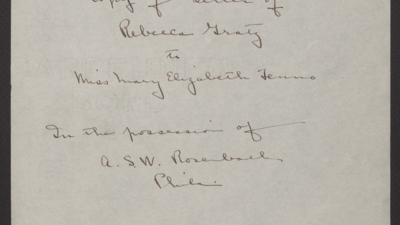 Copy of letter of
Rebecca Gratz
to
Miss Mary Elizabeth Fenno
In the possession of
A. S. W. Rosenbach
Phila.